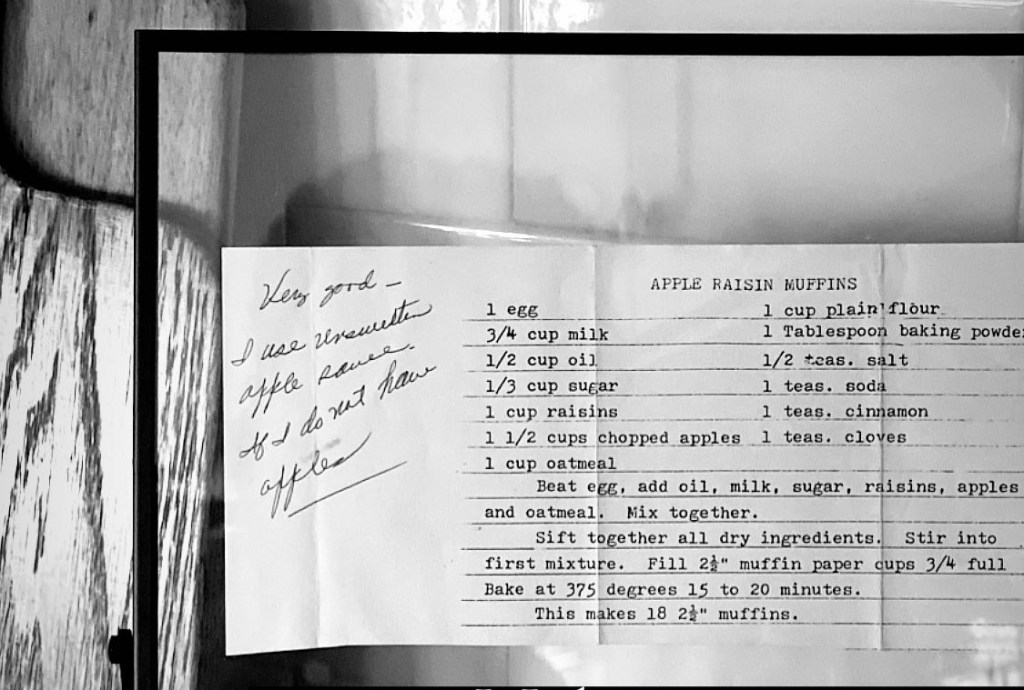 Very good –
I use unsweeten
apple sauce.
If I do not have
apples
APPLE RAISIN MUFFINS
1 egg 1 cup plain flour
3/4 cup milk 1 Tablespoon baking powde
1/2 cup oil 1/2 teas. salt
1/3 cup sugar 1 teas. soda
1 cup raisins 1 teas. cinnamon
1 1/2 cups chopped apples 1 teas. cloves
1 cup oatmeal
Beat egg, add oil, milk, sugar, raisins, apples
and oatmeal. Mix together.
Sift together all dry ingredients. Stir into
first mixture. Fill 2½" muffin paper cups 3/4 full
Bake at 375 degrees 15 to 20 minutes.
This makes 18 2½" muffins.